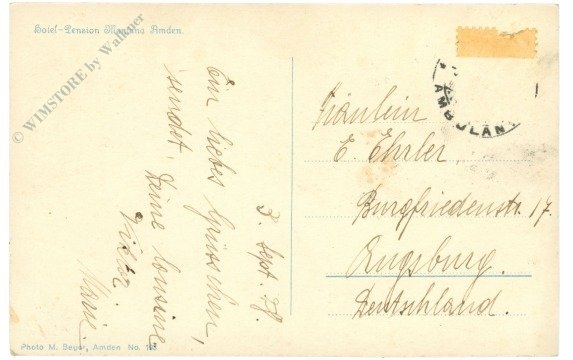 Hotel-Pension Montana Amden.
© WIMSTORE by Wallner
3. Sept.
Ein liebes Grüsschen,
sendet, Deine Cousine
Marie.
AMBULANT
Fräulein
E. Ehrler,
Burgfriedenstr. 17.
Augsburg.
Deutschland.
Photo M. Beyer, Amden No.